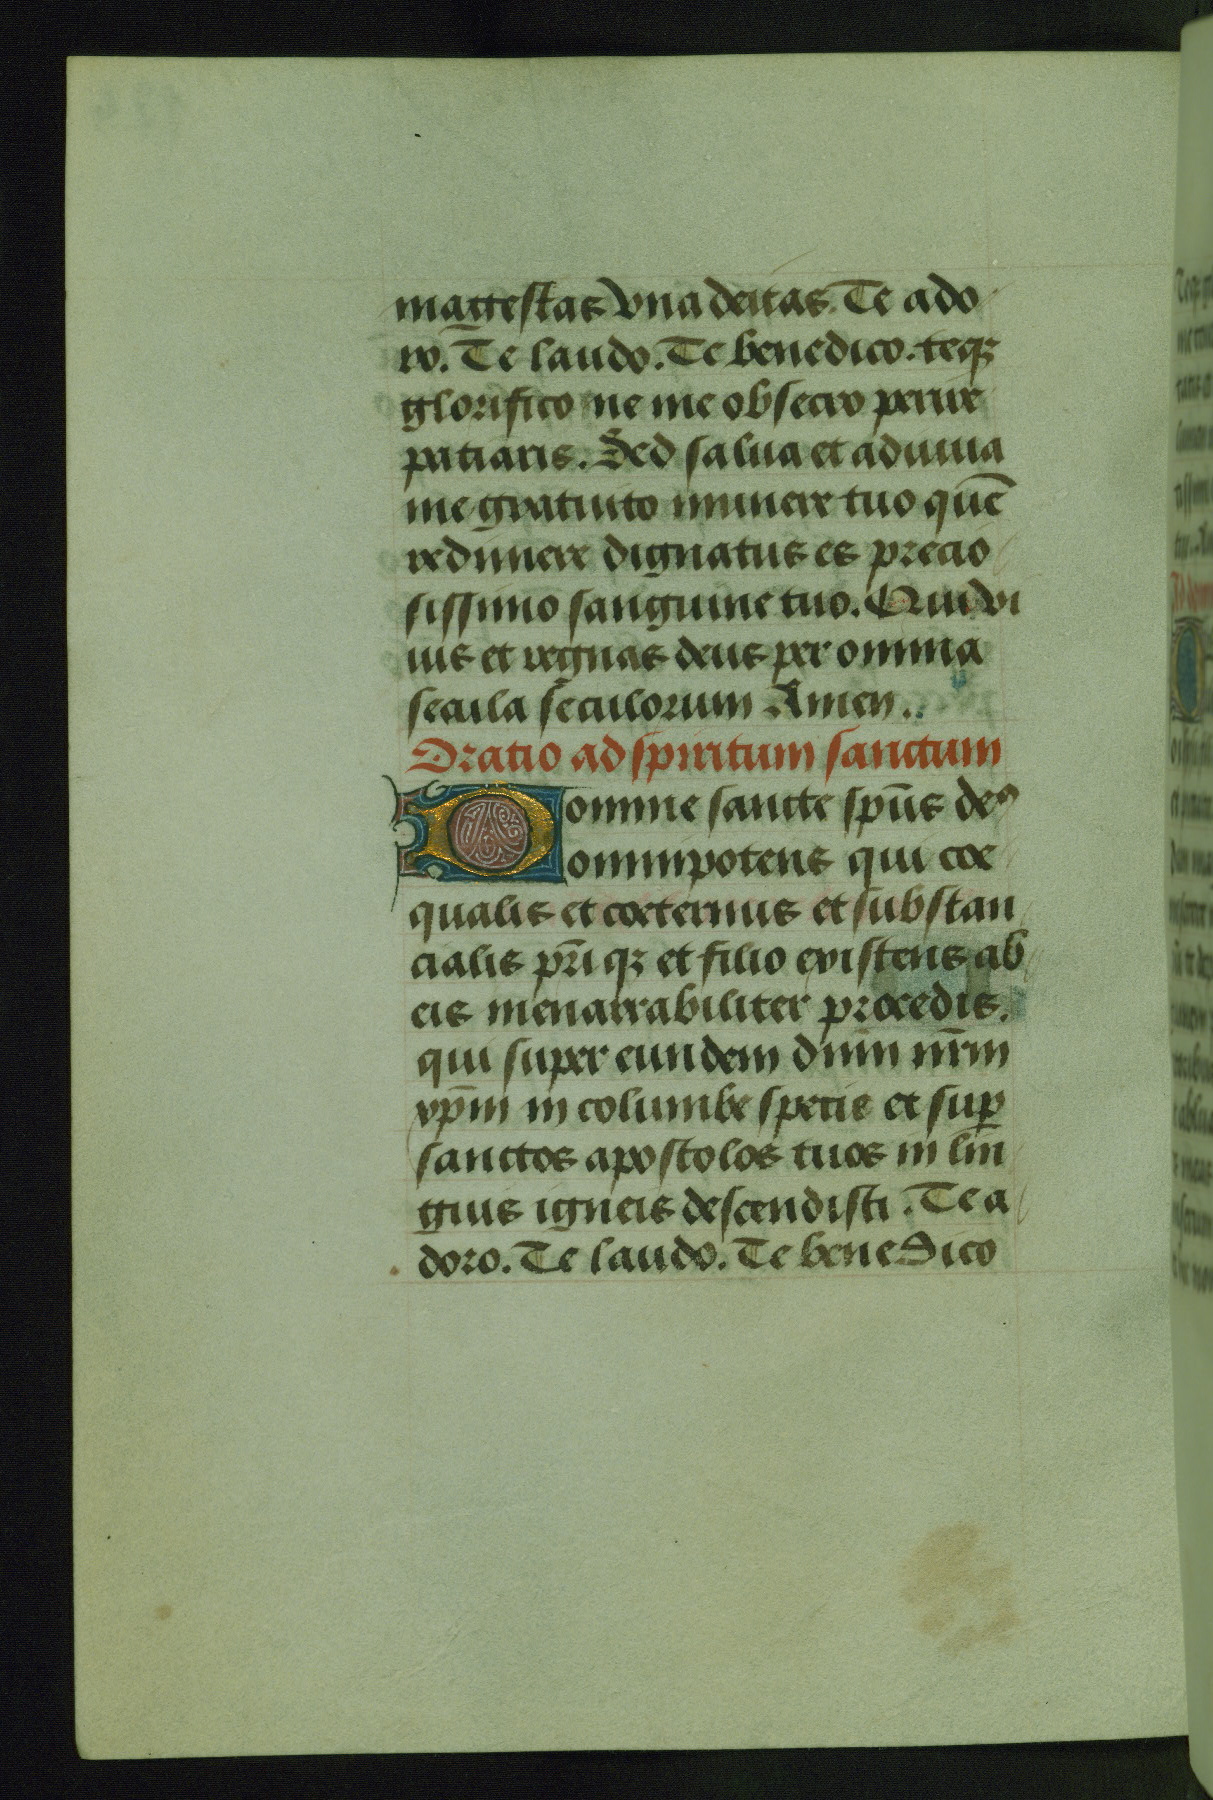 magestas vna deitas. Te ado
ro. Te laudo. Te benedico. teqꝫ
glorifico ne me obsecro perire
patiaris. Sed salua et adiuua
me gratuito munere tuo quē
redimere dignatus es precio
sissimo sanguine tuo. Qui vi
uis et regnas deus per omnia
secula seculorum Amen.
Oratio ad spiritum sanctum
Domine sancte sp̄us deꝰ
omnipotens qui coe
qualis et coeternus et substan
cialis pr̄iqꝫ et filio existens ab
eis inenarrabiliter procedis.
qui super eundem dn̄m nr̄m
xp̄m in columbe specie et suꝑ
sanctos apostolos tuos in lin
guis igneis descendisti. Te a
doro. Te laudo. Te benedico